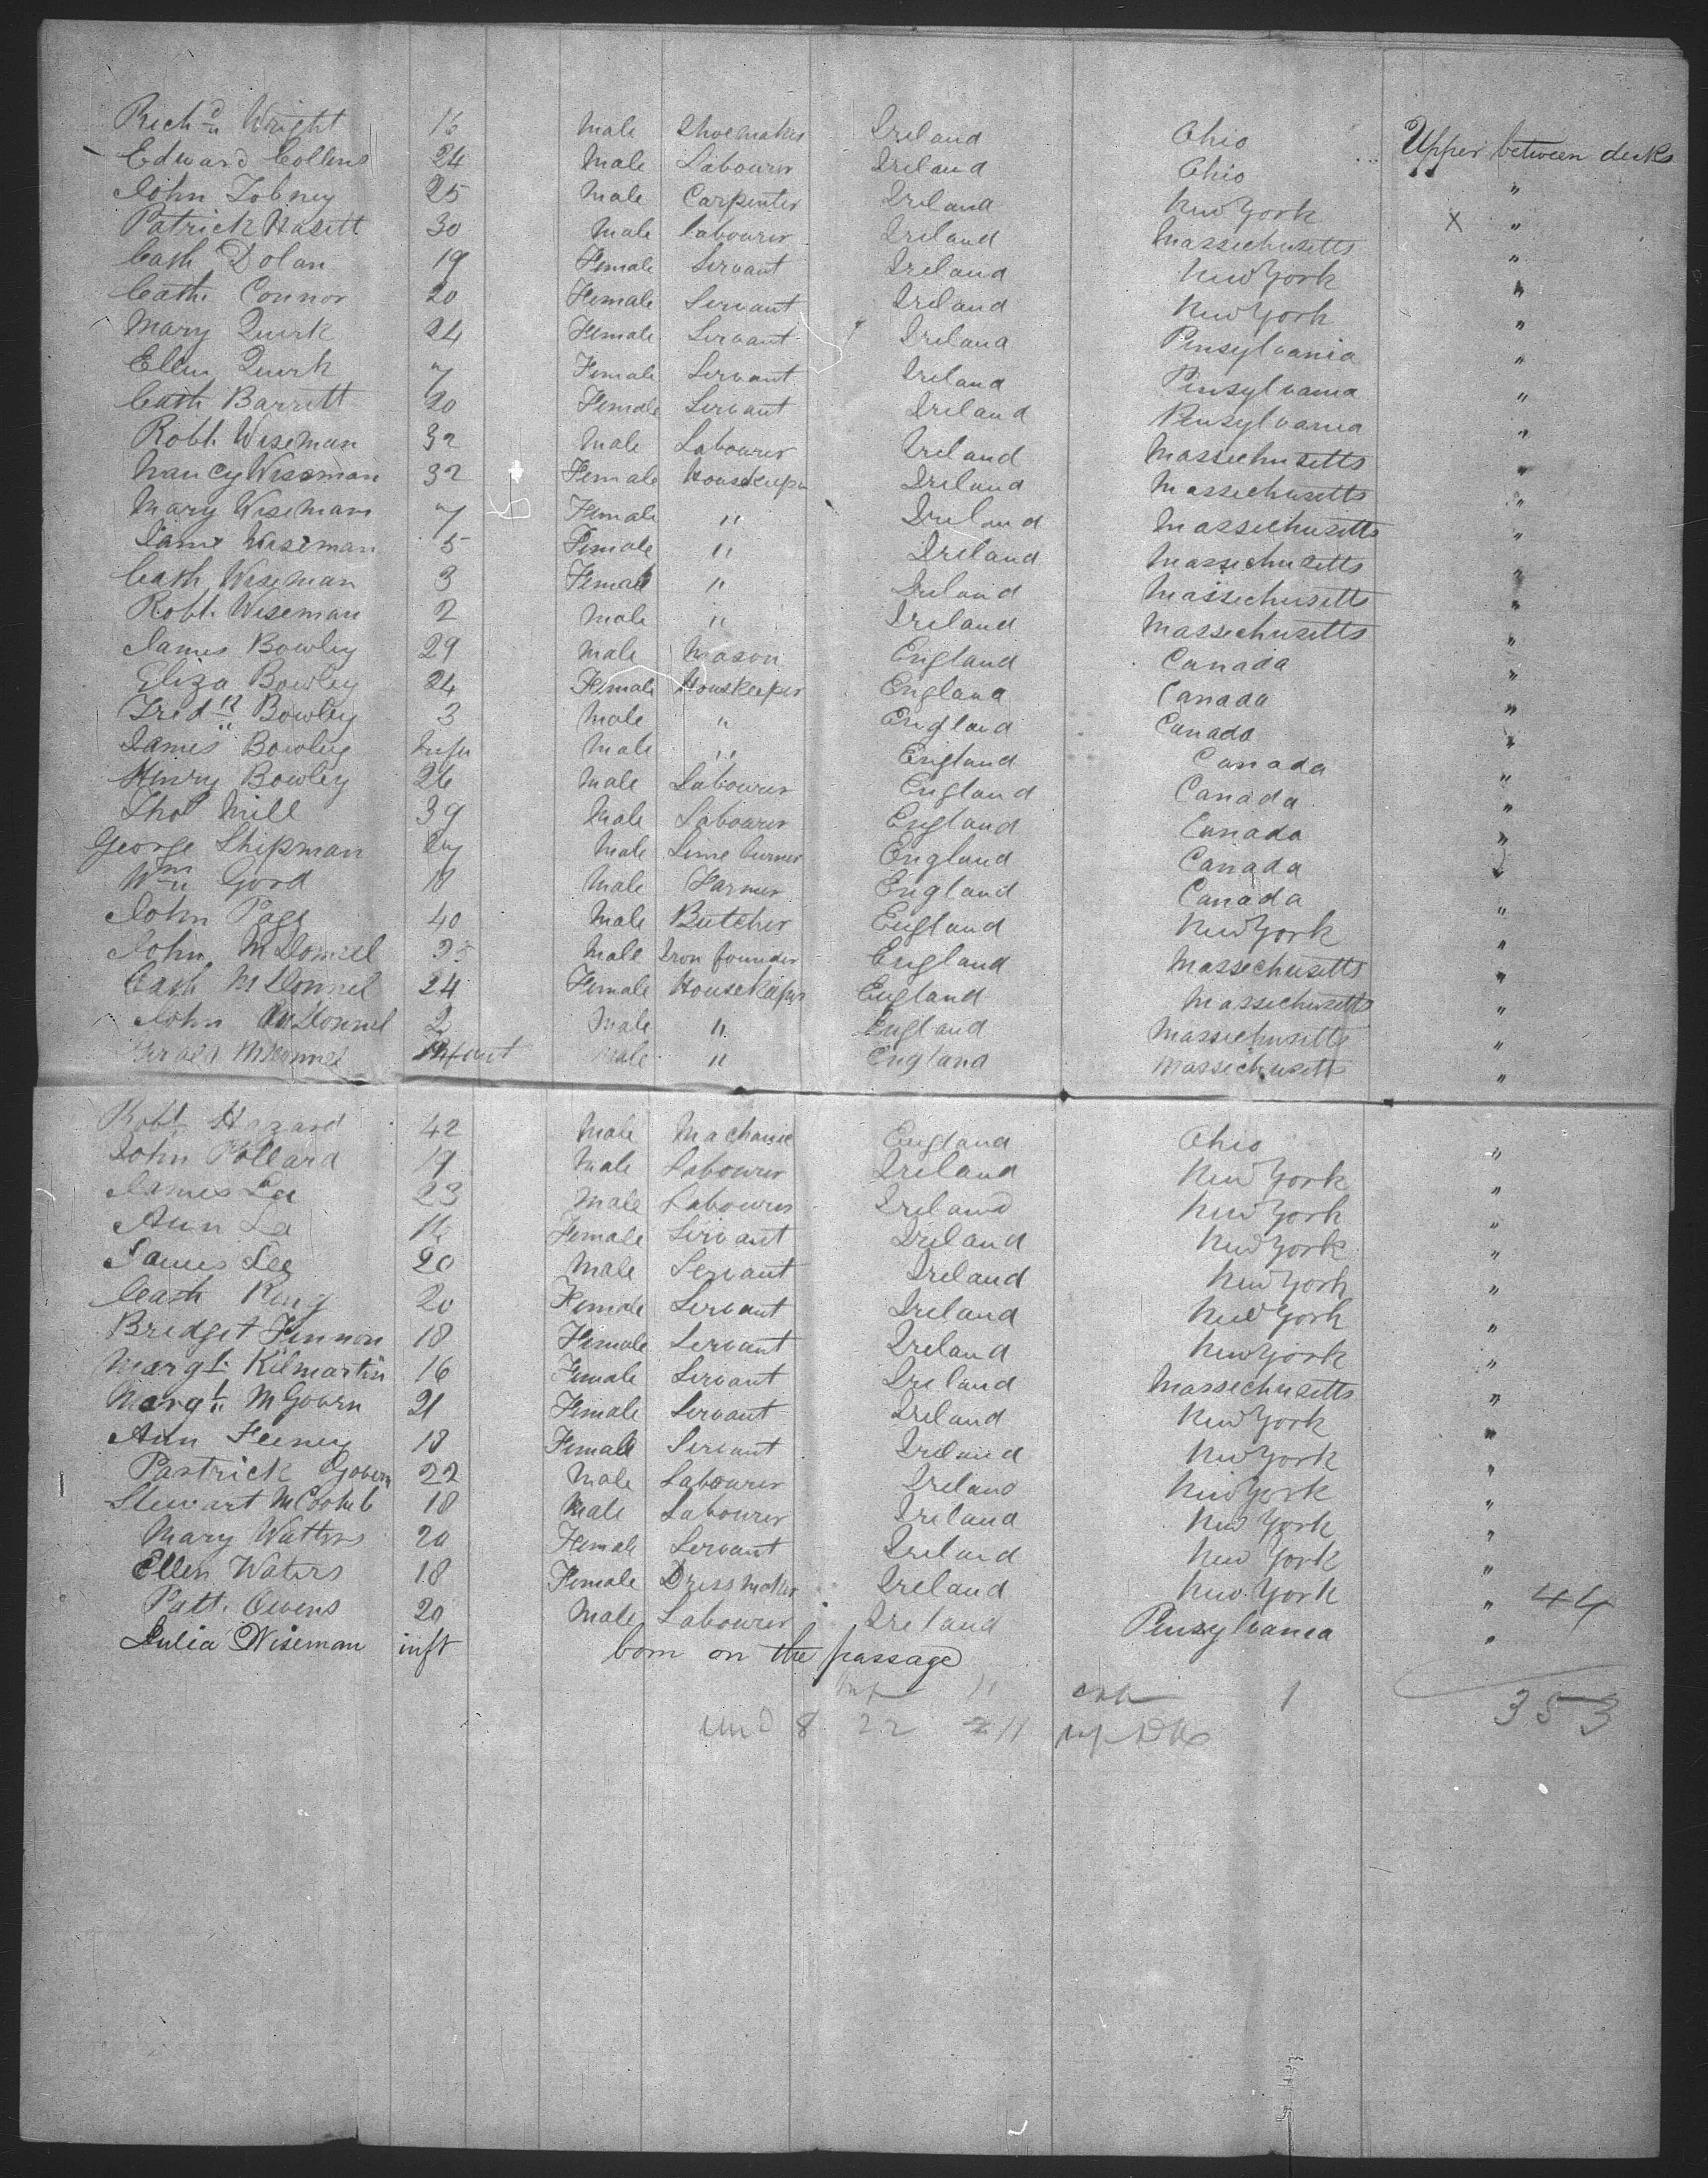 Rich.d Wright 16 Male Shoemaker Ireland Ohio Upper between decks
Edward Collins 24 Male Labourer Ireland Ohio "
John Tobney 25 Male Carpenter Ireland New York X "
Patrick Hasett 30 Male Labourer Ireland Massechusetts "
Cath Dolan 19 Female Servant Ireland New York "
Cath. Connor 20 Female Servant Ireland New York "
Mary Quirk 24 Female Servant Ireland Pensylvania "
Ellen Quirk 7 Female Servant Ireland Pensylvania "
Cath Barrett 20 Female Servant Ireland Pensylvania "
Robt. Wiseman 32 Male Labourer Ireland Massechusetts "
Nancy Wiseman 32 Female Housekeeper Ireland Massechusetts "
Mary Wiseman 7 Female " Ireland Massechusetts "
Jane Wiseman 5 Female " Ireland Massechusetts "
Cath Wiseman 3 Female " Ireland Massechusetts "
Robt. Wiseman 2 Male " Ireland Massechusetts "
James Bowley 29 Male Mason England Canada "
Eliza Bowley 24 Female Housekeeper England Canada "
Fred.k Bowley 3 Male " England Canada "
James Bowley Infn Male " England Canada "
Henry Bowley 26 Male Labourer England Canada "
Thos Mill 39 Male Labourer England Canada "
George Shipman 27 Male Lime burner England Canada "
Wm Gord 18 Male Farmer England Canada "
John Page 40 Male Butcher England New York "
John McDonnel Male Iron founder England Massechusetts "
Cath McDonnel 24 Female Housekeeper England Massechusetts "
John McDonnel 2 Male " England Massechusetts "
McDonnel Infant Male " England Massechusetts "
Robt Hazard 42 Male Machanic England Ohio "
John Pollard 19 Male Labourer Ireland New York "
James Lee 23 Male Labourer Ireland New York "
Ann Le 16 Female Servant Ireland New York "
James Lee 20 Male Servant Ireland New York "
Cath King 20 Female Servant Ireland New York "
Bridget Finnon 18 Female Servant Ireland New York "
Margt. Kilmartin 16 Female Servant Ireland Massechusetts "
Margt McGovern 21 Female Servant Ireland New York "
Ann Feeney 18 Female Servant Ireland New York "
Pastrick Govern 22 Male Labourer Ireland New York "
Stewart McCoomb 18 Male Labourer Ireland New York "
Mary Watters 20 Female Servant Ireland New York "
Ellen Waters 18 Female Dressmaker Ireland New York "
Patt. Owens 20 Male Labourer Ireland Pensylvania " 44
Julia Wiseman inft born on the passage "
inf 11 1 353
und 8 22 11